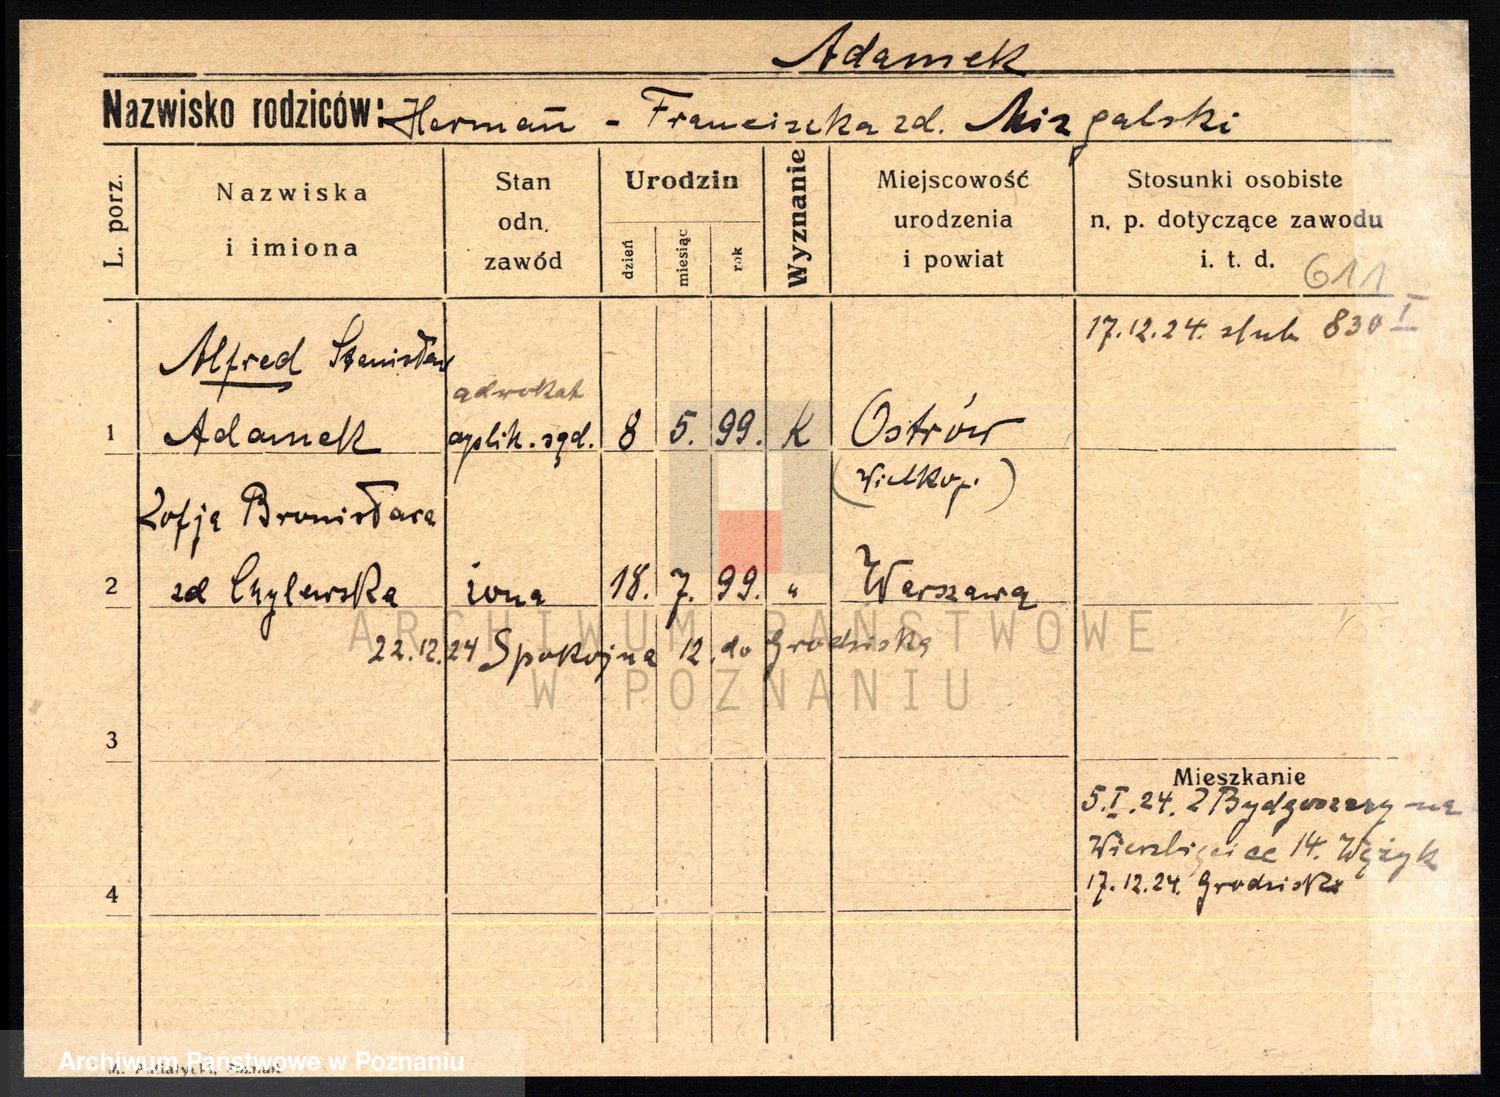 Adamek
Nazwisko rodziców: Hermañ - Franciszka zd. Mizgalski
L. porz.
Nazwiska
i imiona
Stan
odn.
zawód
Urodzin
dzień
miesiąc
rok
Wyznanie
Miejscowość
urodzenia
i powiat
Stosunki osobiste
n. p. dotyczące zawodu
i. t. d.
611
17.12.24. ślub 830 I
Alfred Stanisław
adwokat
1 Adamek aplik. sąd. 8 5. 99. K Ostrów
(Wielkop.)
Zofja Bronisława
2 zd Chylewska żona 18. 7. 99. " Warszawa
22.12.24 Spokojna 12. do Grodziska
3
Mieszkanie
5.I.24. Z Bydgoszczy na
Wierzbięcice 14. Wężyk
17.12.24. Grodziska
4
M. Putiatycki, Poznań
ARCHIWUM PAŃSTWOWE
W POZNANIU
Archiwum Państwowe w Poznaniu